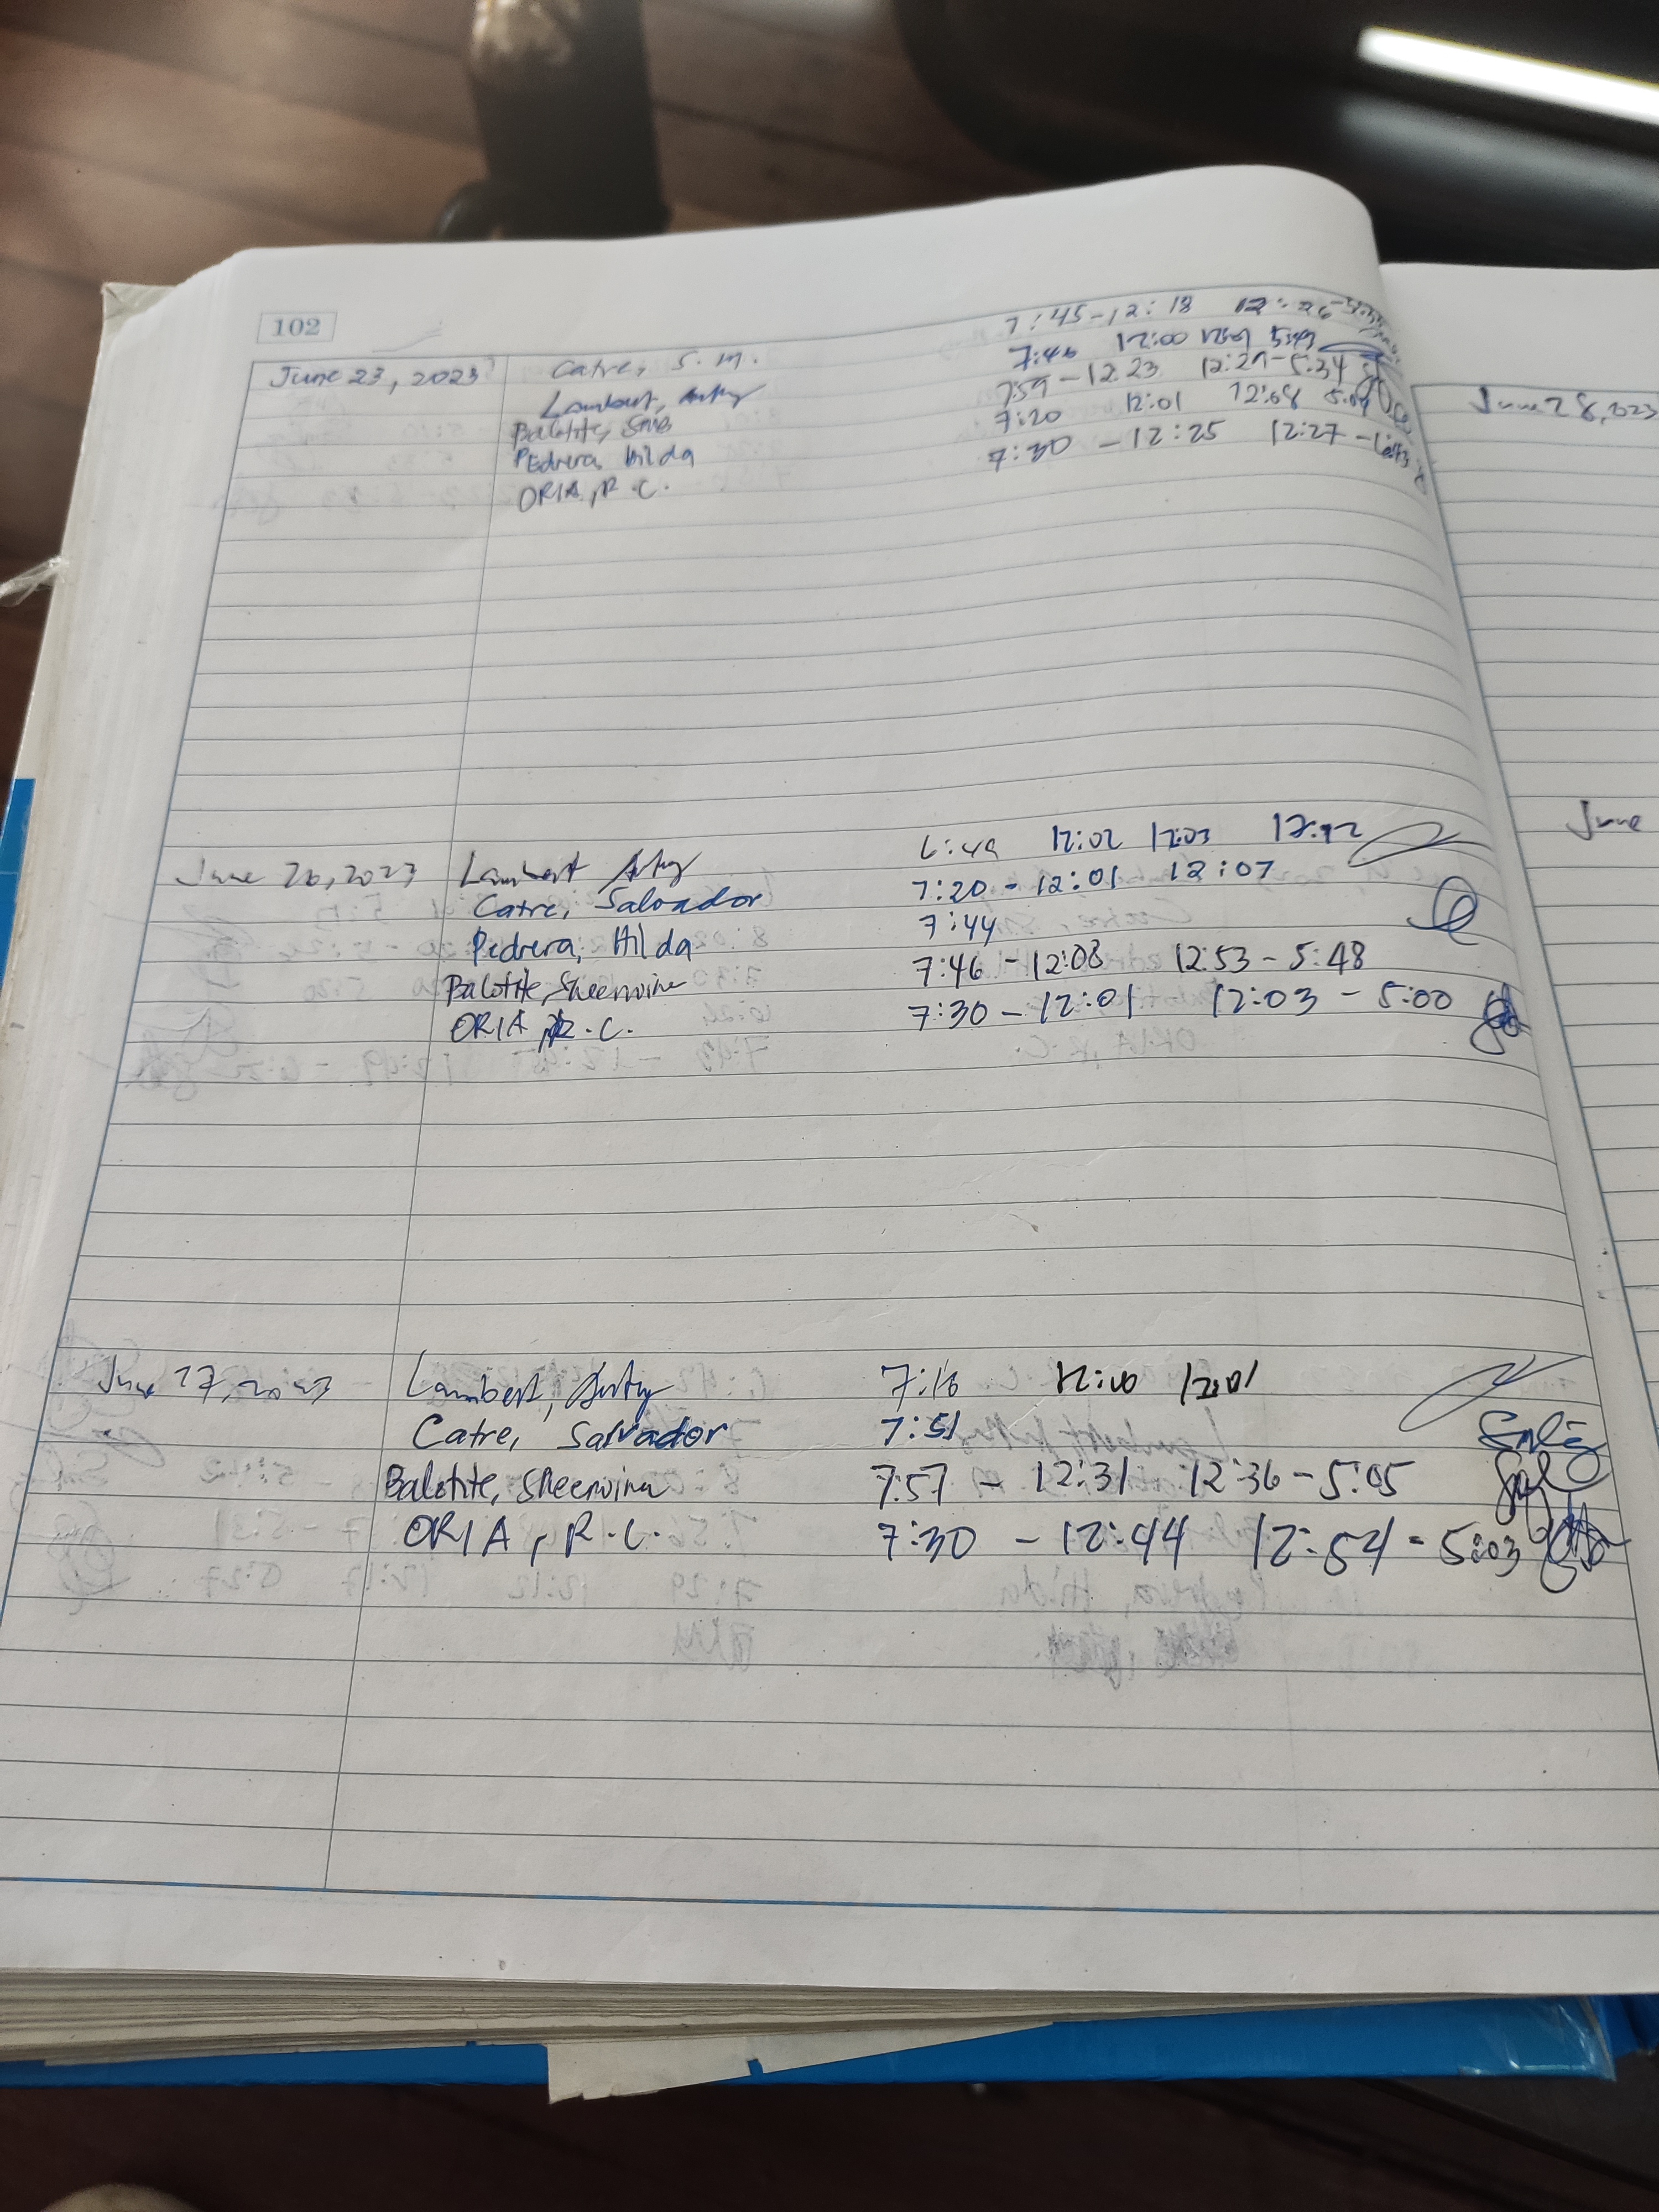 102
June 23, 2023 Catre, S. M. 7:45-12:18 12:26-
Lambert, 7:46 12:00 12:01 5:43
Balotite, SMB 7:59-12:23 12:29-5:34
PEdrera, Hilda 7:20 12:01 12:08
ORIA, R.C. 7:30 - 12:25 12:27 -
June 28, 2023
June 26, 2023 Lambert 6:49 12:02 12:03
Catre, Salvador 7:20 - 12:01 12:07
Pedrera, Hilda 7:44
Balotite, Sheerwina 7:46 - 12:08 12:53 - 5:48
ORIA, R.C. 7:30 - 12:01 12:03 - 5:00
June
June 27, 2023 Lambert, 7:16 12:00 12:01
Catre, Salvador 7:51
Balotite, Sheerwina 7:57 - 12:31 12:36 - 5:05
ORIA, R.C. 7:30 - 12:44 12:54 - 5:03